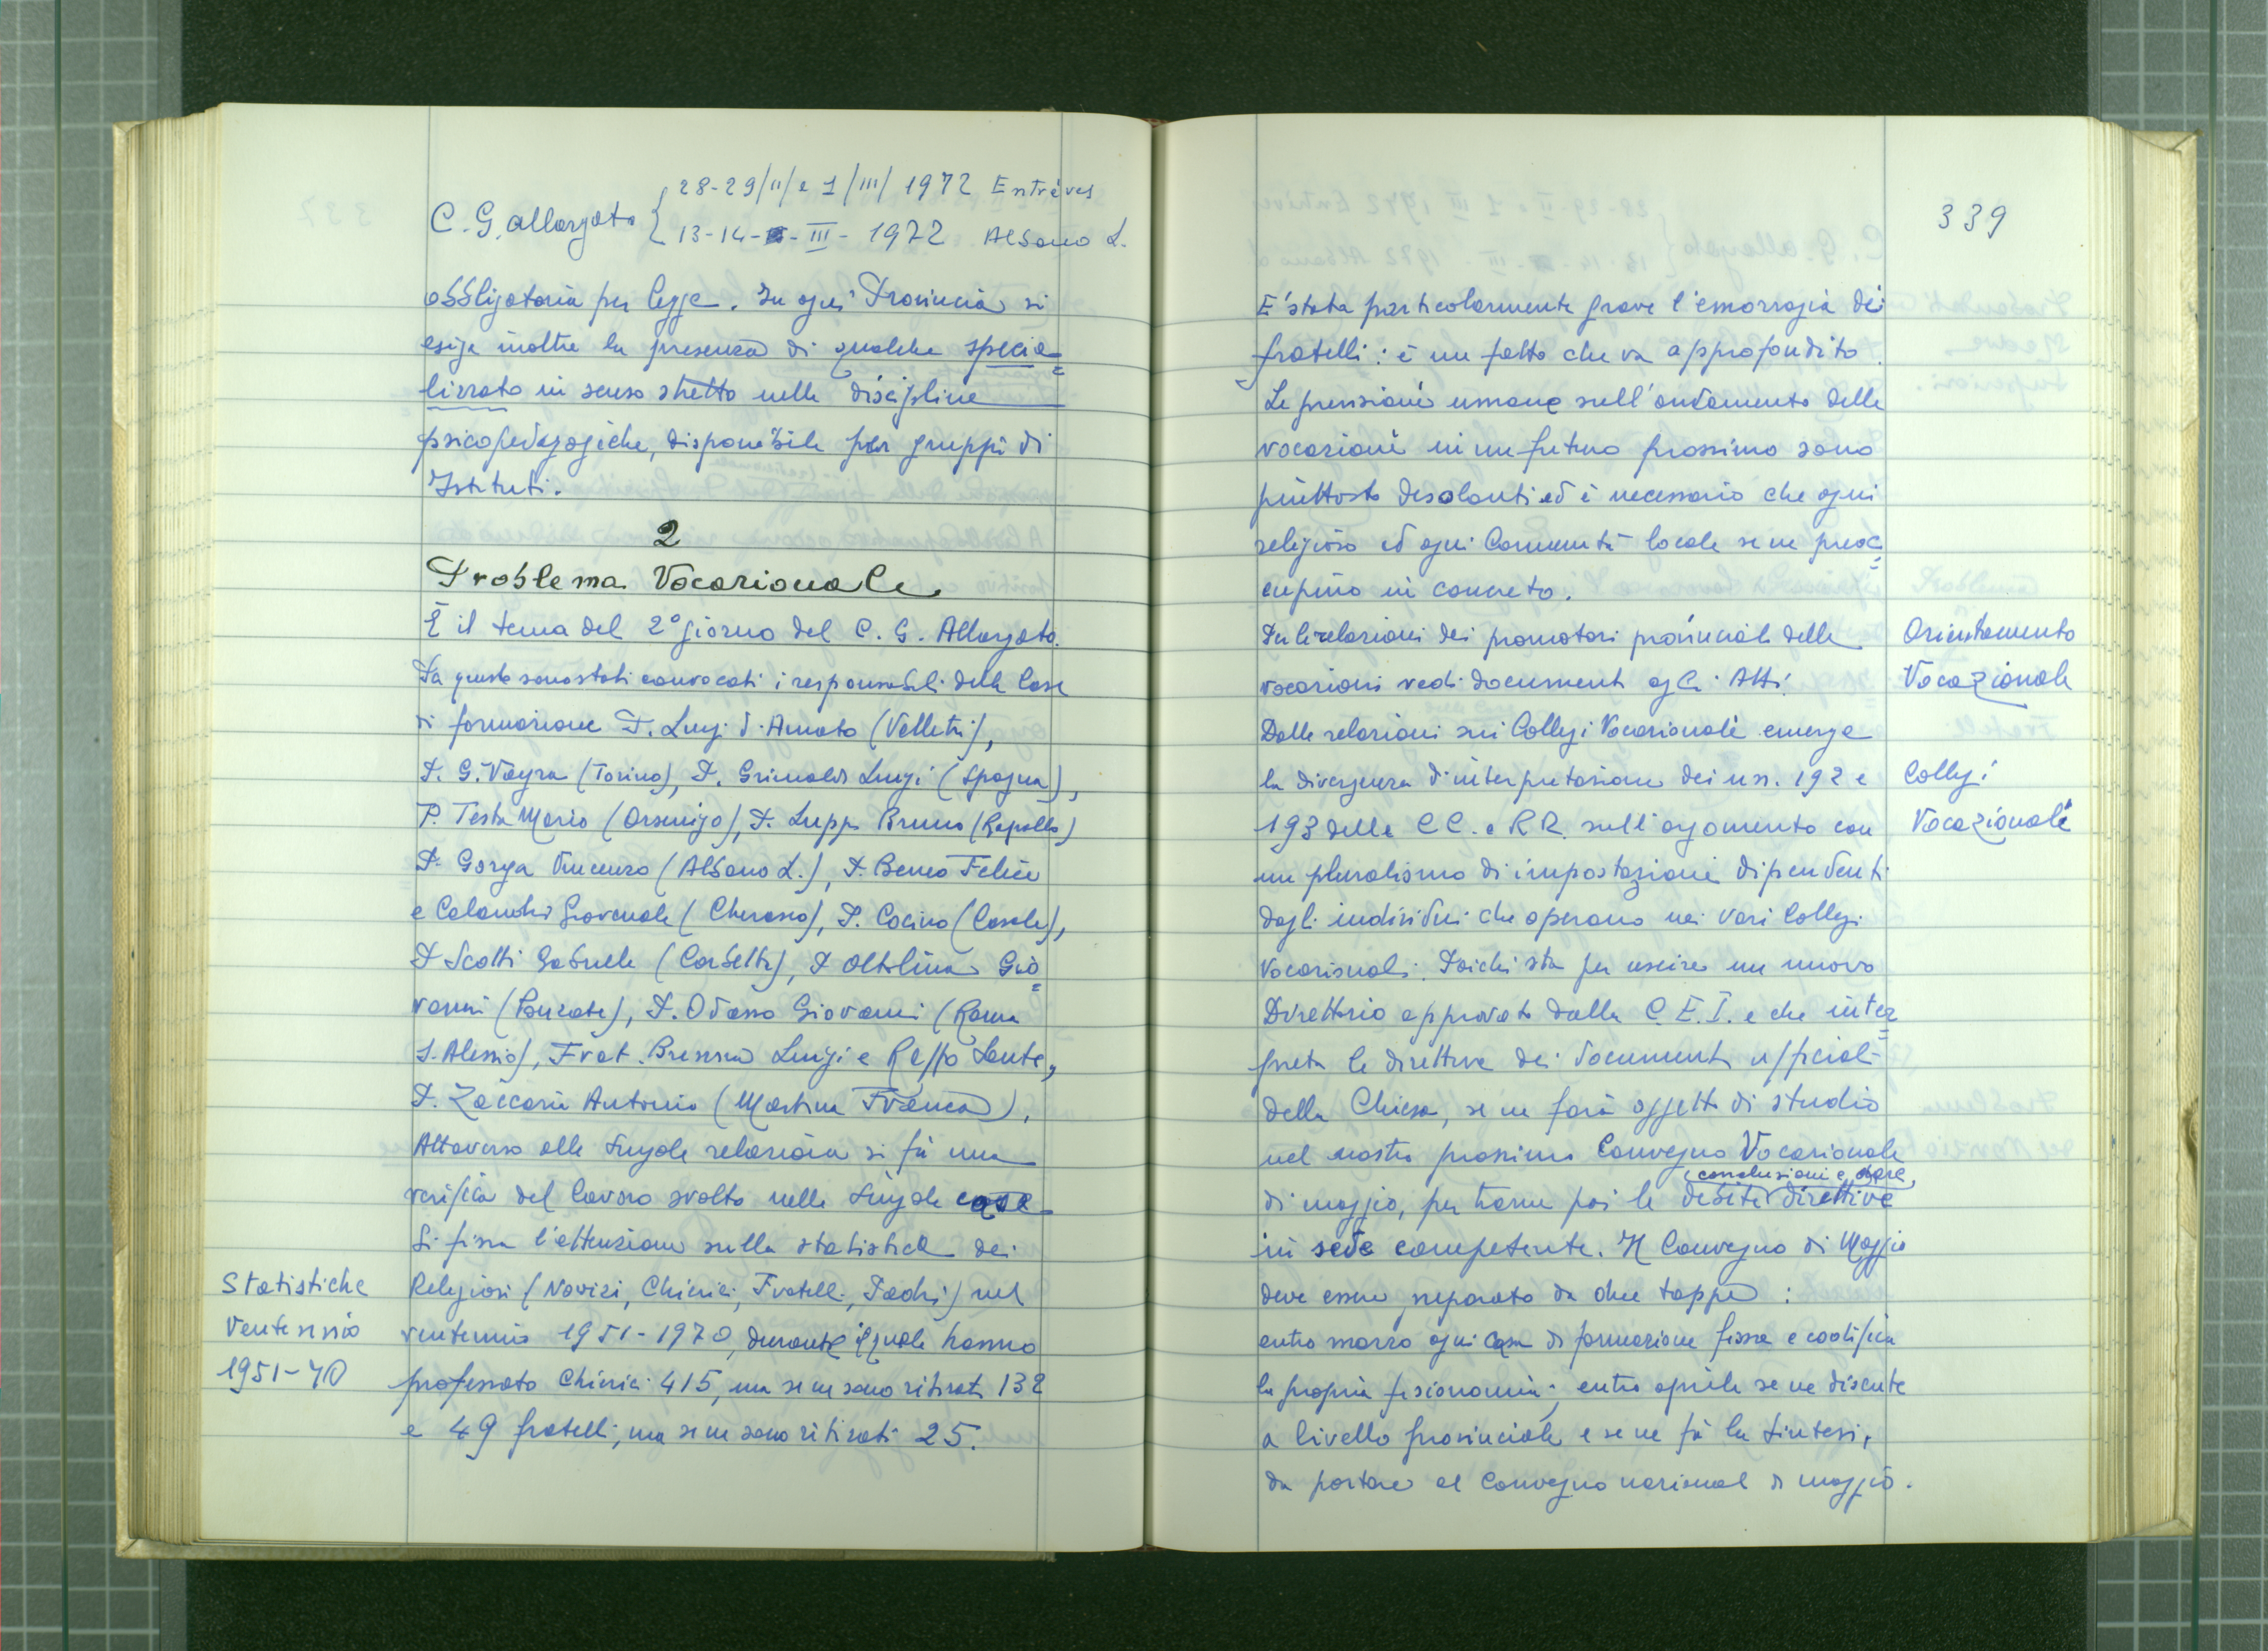 C. G. allargato { 28-29/II/ e 1/III/ 1972 Entrèves
13-14- - III - 1972 Albano L.
obbligatoria per legge. In ogni Provincia si
esige inoltre la presenza di qualche specia=
lizzato in senso stretto nelle discipline
psicopedagogiche, disponibile per gruppi di
Istituti.
2
Problema Vocazionale
È il tema del 2° giorno del C. G. Allargato.
Pa questo sono stati convocati i responsabili delle Case
di formazione P. Luigi d'Amato (Velletri),
P. G. Vayra (Torino), P. Grimaldi Luigi (Spagna),
P. Testa Mario (Orsenigo), P. Luppi Bruno (Rapallo)
P. Gorga Vincenzo (Albano L.), P. Beneo Felice
e Calandri Giovenale (Cherasco), P. Cocino (Casale),
P Scotti Gabriele (Corbetta), P Oltolina Gio=
vanni (Ponzate), P. Odasso Giovanni (Roma
S. Alessio), Frat. Brenna Luigi e Raffo Sante,
P. Zaccaria Antonio (Martina Franca).
Attaverso alle singole relazioni si fà una
verifica del lavoro svolto nelle singole case
Si fissa l'attenzione sulla statistica dei
Statistiche
Ventennio
1951-70
Religiosi (Novizi, Chierici, Fratelli, Padri) nel
ventennio 1951-1970, durante il quale hanno
professato Chierici 415, ma se ne sono ritirati 132
e 49 fratelli, ma se ne sono ritirati 25.
339
E' stata particolarmente grave l'emorragia dei
fratelli: è un fatto che va approfondito.
Le previsioni umane sull'andamento delle
vocazioni in un futuro prossimo sono
piuttosto desolanti ed è necessario che ogni
religioso ed ogni Comunità locale se ne preoc=
cupino in concreto.
Orientamento
Vocazionale
Per le relazioni dei promotori provinciali delle
vocazioni vedi documenti agli Atti.
Dalle relazioni sui Collegi Vocazionali emerge
Collegi
Vocazionali
la divergenza d'interpretazione dei nn. 192 e
193 delle CC. e RR. sull'argomento con
un pluralismo di impostazioni dipendenti
dagli individui che operano nei vari Collegi
Vocazionali. Poichè sta per uscire un nuovo
Direttorio approvato dalla C. E. I. e che inter=
preta le direttive dei documenti ufficiali
della Chiesa, se ne farà oggetto di studio
nel nostro prossimo Convegno Vocazionale
conclusioni e dare
di maggio, per trarne poi le debite direttive
in sede competente. Il Convegno di Maggio
deve essere preparato da due tappe:
entro marzo ogni casa di formazione fissa e codifica
la propria fisionomia; entro aprile se ne discute
a livello provinciale e se ne fà la sintesi,
da portare al Convegno nazional di maggio.